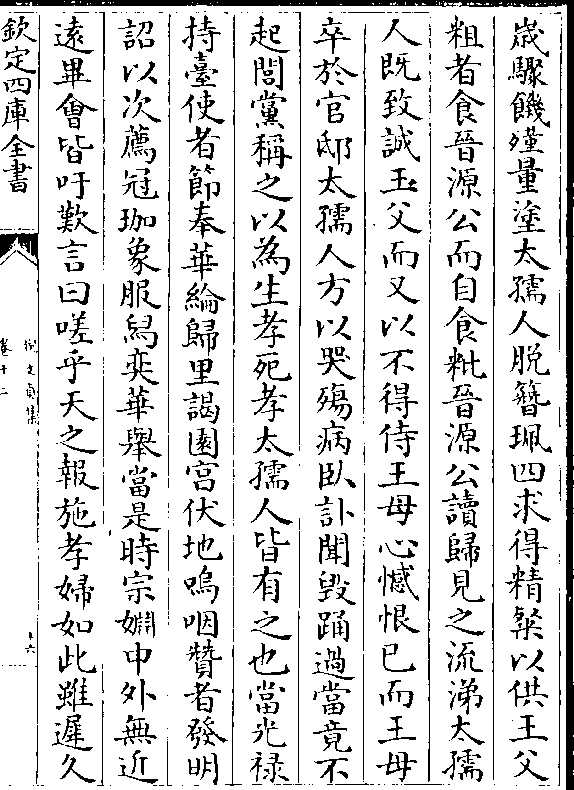 歳驟饑殣量塗太孺人脱簪珮四求得精粲以供王父
粗者食晉源公而自食粃晉源公讀歸見之流涕太孺
人既致誠王父而又以不得侍王母心憾恨已而王母
卒於官邸太孺人方以哭殤病臥訃聞毀踊過當竟不
起閭黨稱之以為生孝死孝太孺人皆有之也當光禄
持臺使者節奉華綸歸里謁園宫伏地嗚咽贊者發明
詔以次薦冠珈象服舄奕華舉當是時宗婣中外無近
遠畢會皆吁歎言曰嗟乎天之報施孝婦如此雖遲久
欽定四庫全書
卷十二
十六